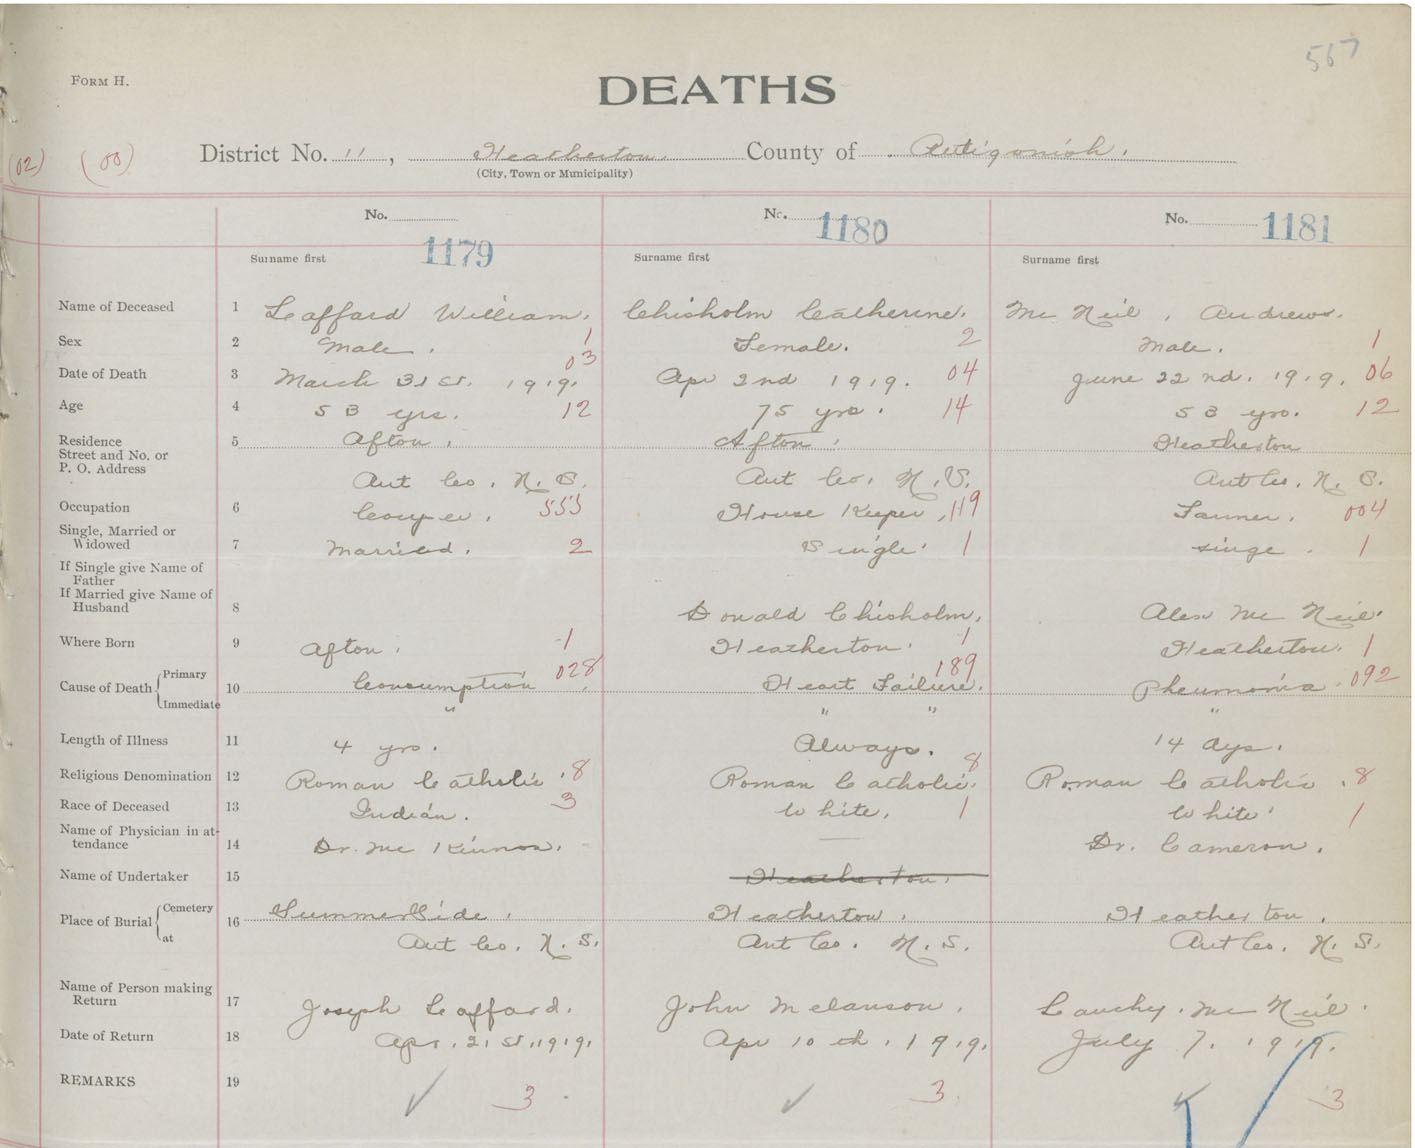 567
FORM H.
DEATHS
(02) (00) District No. 11, Heatherton. County of Antigonish.
(City, Town or Municipality)
No. No. 1180 No. 1181
1179
Surname first Surname first Surname first
Name of Deceased 1 Lafford William. Chisholm Catherine. Mc Neil, Andrew.
Sex 2 Male. 1 Female. 2 Male. 1
Date of Death 3 March 31st. 1919. 03 Apr 2nd 1919. 04 June 22nd. 1919. 06
Age 4 53 yrs. 12 75 yrs. 14 53 yrs. 12
Residence 5 Afton. Afton. Heatherton
Street and No. or
P. O. Address Ant Co. N.S. Ant Co. N.S. Ant Co. N.S.
Occupation 6 Cooper. 555 House Keeper, 119 Farmer. 004
Single, Married or
Widowed 7 Married. 2 Single. 1 singe. 1
If Single give Name of
Father
If Married give Name of
Husband 8 Donald Chisholm. Alex Mc Neil.
Where Born 9 Afton. 1 Heatherton. 1 Heatherton. 1
Cause of Death { Primary 10 Consumption 028 Heart Failure. 189 Pneumonia. 092
Immediate " " " "
Length of Illness 11 4 yrs. Always. 14 dys.
Religious Denomination 12 Roman Catholic. 8 Roman Catholic. 8 Roman Catholic. 8
Race of Deceased 13 Indian. 3 White. 1 White. 1
Name of Physician in at-
tendance 14 Dr. Mc Kinnon. — Dr. Cameron.
Name of Undertaker 15 Heatherton.
Place of Burial { Cemetery 16 SummerSide. Heatherton. Heatherton.
at Ant Co. N.S. Ant Co. N.S. Ant Co. N.S.
Name of Person making
Return 17 Joseph Lafford. John Melanson. Lauchy. Mc Neil.
Date of Return 18 Apr. 21st, 1919. Apr 10th. 1919. July 7. 1919.
REMARKS 19 ✓ 3 ✓ 3 ✓ 3